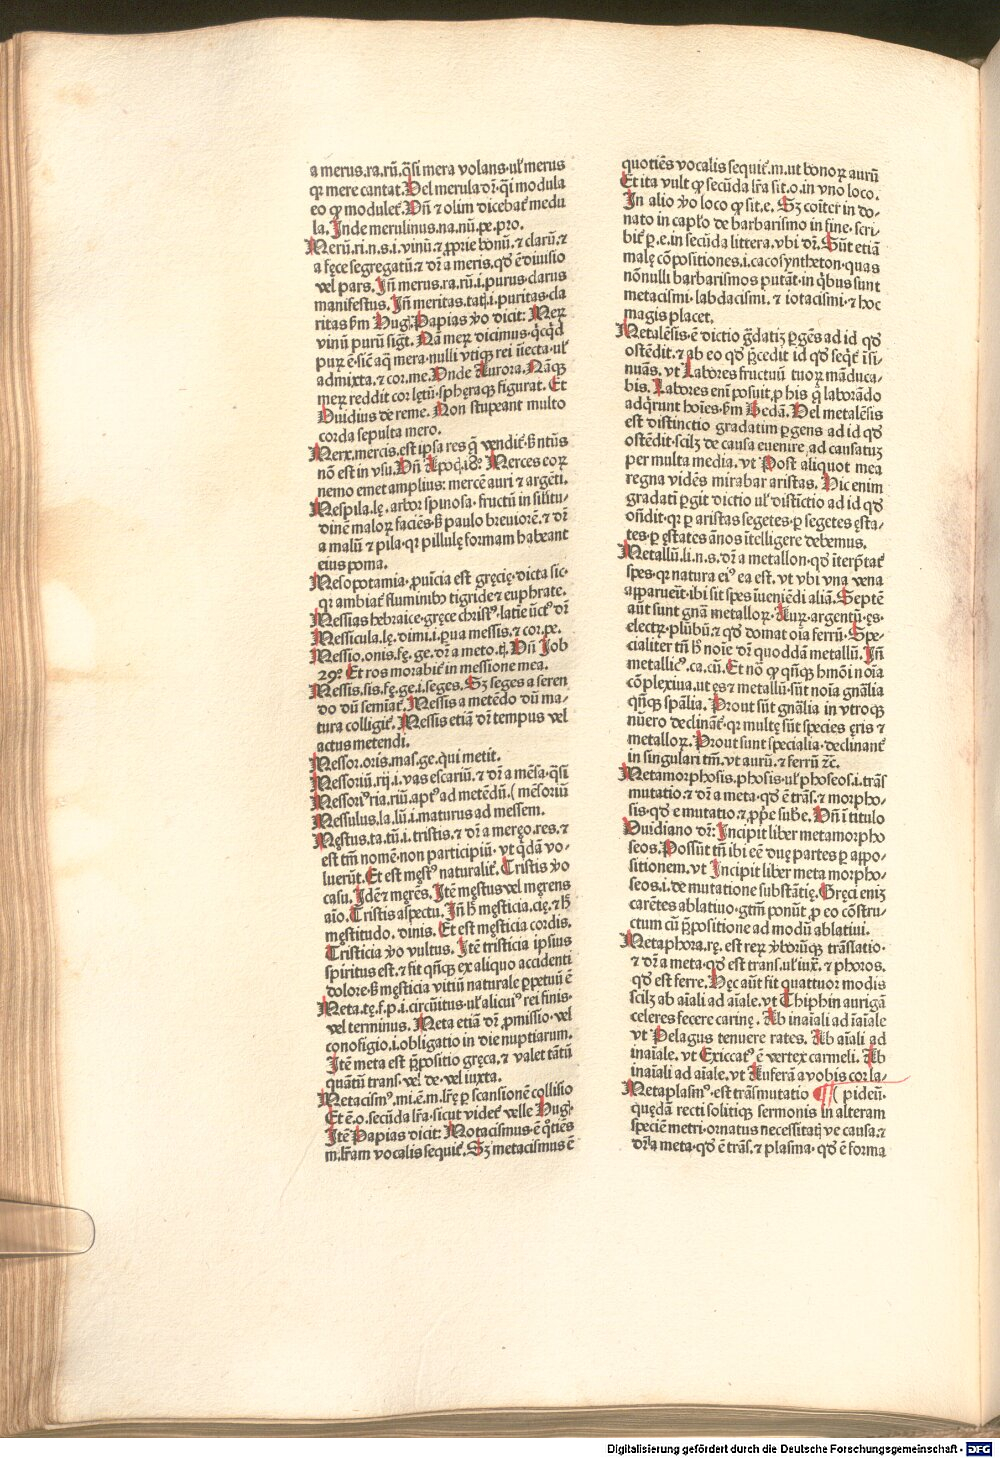 a merus.ra.rū.q̄si mera volans.ul᷒ merus
qꝫ mere cantat. Vel merula dr̄.q̄i modula
eo ꝙ modulet᷒. Vn̄ ⁊ olim dicebat᷒ medu
la. Inde merulinus.na.nū.pe.pro.
Merū.ri.n.s.i.vinū.⁊ ꝓprie bonū.⁊ clarū.⁊
a fęce segregatū.⁊ dr̄ a meris.qd̄ ē diuisio
vel pars. Iñ merus.ra.rū.i.purus.clarus
manifestus. Iñ meritas.tatꝭ.i.puritas.cla
ritas ẜm Hug᷒. Papias ꝟo dicit: Meꝝ
vinū purū sigt᷒. Nā meꝝ dicimus.q̇cq̇d
puꝝ ē.sic̄ aq̄ mera.nulli vtiqꝫ rei iīecta.ul᷒
admixta.⁊ cor.me. Vnde Aurora. Nāqꝫ
meꝝ reddit cor lętū.sphęraqꝫ figurat. Et
Ouidius de reme. Non stupeant multo
corda sepulta mero.
Merx.mercis.est ipsa res q̄ vendit᷒.ẜ ntūs
nō est in vsu. Vn̄ Apoc̨.18. Merces eoꝝ
nemo emet amplius: mercē auri ⁊ argēti.
Mespila.lę.arbor spinosa.fructū in silitu-
dinē maloꝝ faciēs.ẜ paulo breuiorē.⁊ dr̄
a malū ⁊ pila.qꝛ pillulę formam habeant
eius poma.
Mesopotamia.ꝓuīcia est gręcię.dicta sic.
qꝛ ambiat᷒ fluminibꝰ tigride ⁊ euphrate.
Messias hebraice.gręce christꝰ.latine ūctꝰ dr̄
Messicula.lę.dimi.i.ꝑua messis.⁊ cor.pe.
Messio.onis.fę.ge.dr̄ a meto.tꝭ. Vn̄ Job
29. Et ros morabit᷒ in messione mea.
Messis.sis.fę.ge.i.seges. Sꝫ seges a seren
do dū semiat᷒. Messis a metēdo dū ma-
tura colligit᷒. Messis etiā dr̄ tempus vel
actus metendi.
Messor.oris.mas.ge.qui metit.
Messoriū.rij.i.vas escariū.⁊ dr̄ a mēsa.q̄si
Messoriꝰ.ria.riū.aptꝰ ad metēdū. ( mēsoriū
Messulus.la.lū.i.maturus ad messem.
Męstus.ta.tū.i.tristis.⁊ dr̄ a meręo.res.⁊
est tm̄ nomē.non participiū.vt q̇dā vo-
luerūt. Et est męstꝰ naturalit᷒. Tristis ꝟo
casu. Idē ⁊ męrēs. Itē męstus vel męrens
aīo. Tristis aspectu. Iñ hꝰ męsticia.cię.⁊ hꝰ
męstitudo.dinis. Et est męsticia cordis.
Tristicia ꝟo vultus. Itē tristicia ipsius
spiritus est.⁊ fit qn̄qꝫ ex aliquo accidenti
dolore.ẜ męsticia vitiū naturale ꝑpetuū ē
Meta.tę.f.p.i.circūitus.ul᷒ alicuiꝰ rei finis.
vel terminus. Meta etiā dr̄ ꝓmissio.vel
confogio.i.obligatio in die nuptiarum.
Itē meta est p̄positio gręca.⁊ valet tātū
quātū trans.vel de.vel iuxta.
Metacismꝰ.mi.ē.m.lr̄ę ꝑ scansionē collisio
Et ē.o.secūda lr̄a.sicut videt᷒ velle Hug᷒.
Itē Papias dicit: Motacismus.ē q̊tiēs
m.lr̄am vocalis sequit᷒. Sꝫ metacismus ē
quotiēs vocalis sequit᷒.m.ut bonoꝝ aurū
Et ita vult ꝙ secūda lr̄a sit.o.in vno loco.
In alio ꝟo loco ꝙ sit.e. Sꝫ coīter in do-
nato in capl᷒o de barbarismo in fine.scri-
bit᷒ ꝑ.e.in secūda littera.vbi dr̄. Sūt etiā
malę cōpositiones.i.cacosyntheton.quas
nōnulli barbarismos putāt.in q̇bus sunt
metacismi.labdacismi.⁊ iotacismi.⁊ hoc
magis placet.
Metalēsis.ē dictio g̊datiꝫ ꝑgēs ad id qd̄
ostēdit.⁊ ab eo qd̄ p̄cedit id qd̄ seqt᷒ iīsi-
nuās.vt Labores fructuū tuoꝝ māduca-
bis. Labores eni posuit,p his q̄ laborādo
adq̇runt hoīes.ẜm Bedā. Vel metalēsis
est distinctio gradatim ꝑgens ad id qd̄
ostēdit.scilꝫ de causa euenire ad causatuꝫ
per multa media.vt Post aliquot mea
regna vidēs mirabar aristas. Hic enim
gradatī ꝑgit dictio ul᷒ distictio ad id qd̄
on̄dit.qꝛ ꝑ aristas segetes.ꝑ segetes ęsta-
tes.ꝑ ęstates ānos itelligere debemus.
Metallū.li.n.s.dr̄ a metallon.qd̄ iterp̄tat᷒
spes.qꝛ natura eiꝰ ea est.vt vbi vna vena
apparuerit.ibi sit spes iueniēdi aliā. Septē
aūt sunt gnā metalloꝝ. Auꝝ.argentū.ęs.
electꝝ.plūbū.⁊ qd̄ domat oīa ferrū. Spe-
cialiter tn̄ h noīe dr̄ quoddā metallū. Iñ
metallicꝰ.ca.cū. Et nō ꝙ qn̄qꝫ hmōi noīa
cōplexiua.ut ęs ⁊ metallū.sūt noīa gnālia
qn̄qꝫ spālia. Prout sūt gnālia in vtroqꝫ
nūero declinat᷒.qꝛ multę sūt species ęris ⁊
metalloꝝ. Prout sunt specialia.declinant᷒
in singulari tm̄.vt aurū.⁊ ferrū ⁊c̄.
Metamorphosis.phosis.ul᷒ phoseos.i.trās
mutatio.⁊ dr̄ a meta.qd̄ ē trās.⁊ morpho-
sis.qd̄ e mutatio.⁊ ꝓpe sube. Vn̄ ī titulo
Ouidiano dr̄: Incipit liber metamorpho
seos. Possūt tn̄ ibi eē duę partes ꝑ appo-
sitionem.vt Incipit liber meta morpho-
seos.i.de mutatione substātię. Gręci eniꝫ
carētes ablatiuo.gtm̄ ponūt ꝓ eo cōstru-
ctum cū p̄positione ad modū ablatiui.
Metaphora.rę.est reꝝ ꝟboꝝqꝫ trāslatio.
⁊ dr̄ a meta.qd̄ est trans.ul᷒ iux̄.⁊ phoros.
qd̄ est ferre. Hęc aūt fit quattuor modis
scilꝫ ab aīali ad aīale.vt Thiphin aurigā
celeres fecere carinę. Ab inaīali ad īaīale
vt Pelagus tenuere rates. Ab aīali ad
inaīale.vt Exiccatꝰ ē vertex carmeli. Ab
inaīali ad aīale.vt Auferā a vobis cor la-
Metaplasmꝰ.est trāsmutatio ( pideū.
quędā recti solitiqꝫ sermonis in alteram
speciē metri.ornatus necessitatꝭ ve causa.⁊
dr̄a meta.qd̄ ē trās.⁊ plasma.qd̄ ē forma
Digitalisierung gefördert durch die Deutsche Forschungsgemeinschaft - DFG